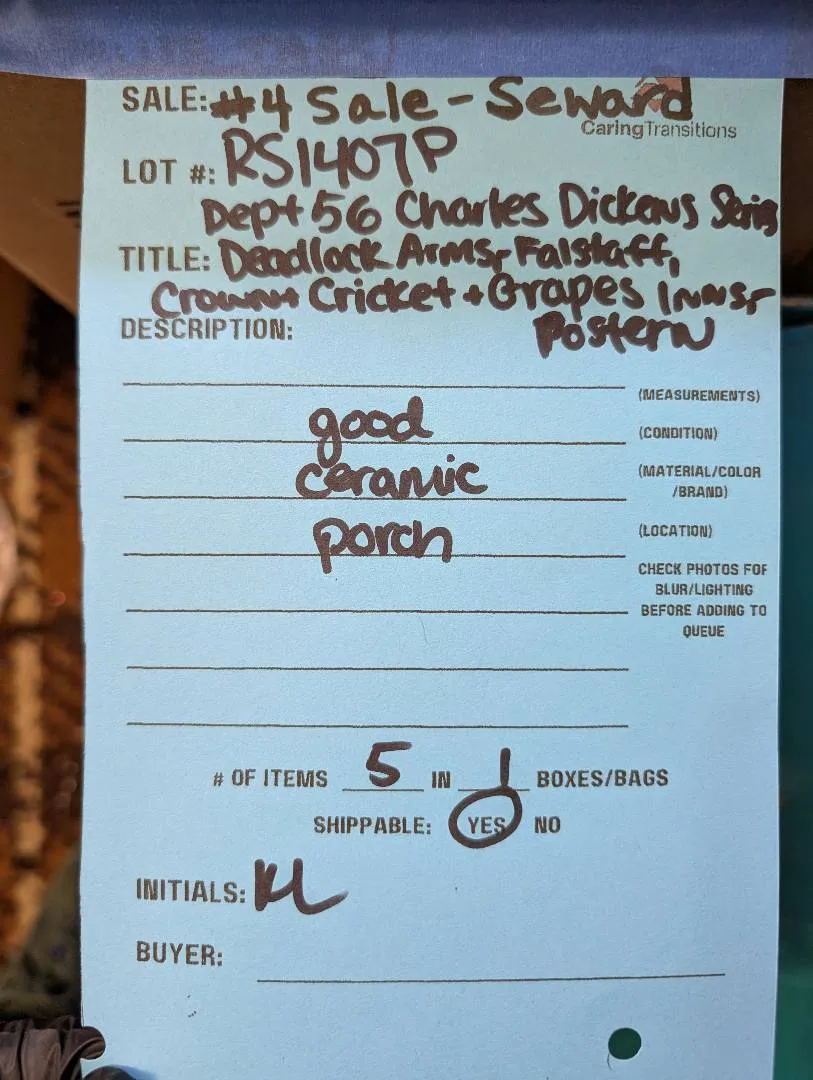 SALE: #4 Sale - Seward
CaringTransitions
LOT #: RS1407P
Dept 56 Charles Dickens Series
TITLE: Deadlock Arms, Falstaff,
Crown + Cricket + Grapes Inns,
DESCRIPTION: Postern
(MEASUREMENTS)
good (CONDITION)
ceramic (MATERIAL/COLOR
/BRAND)
porch (LOCATION)
CHECK PHOTOS FOR
BLUR/LIGHTING
BEFORE ADDING TO
QUEUE
# OF ITEMS 5 IN 1 BOXES/BAGS
SHIPPABLE: YES NO
INITIALS: KL
BUYER: